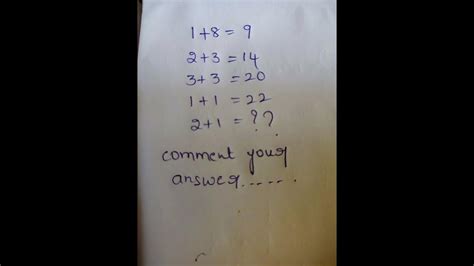 1+8 = 9
2+3 = 14
3+3 = 20
1+1 = 22
2+1 = ??
comment your
answer.....